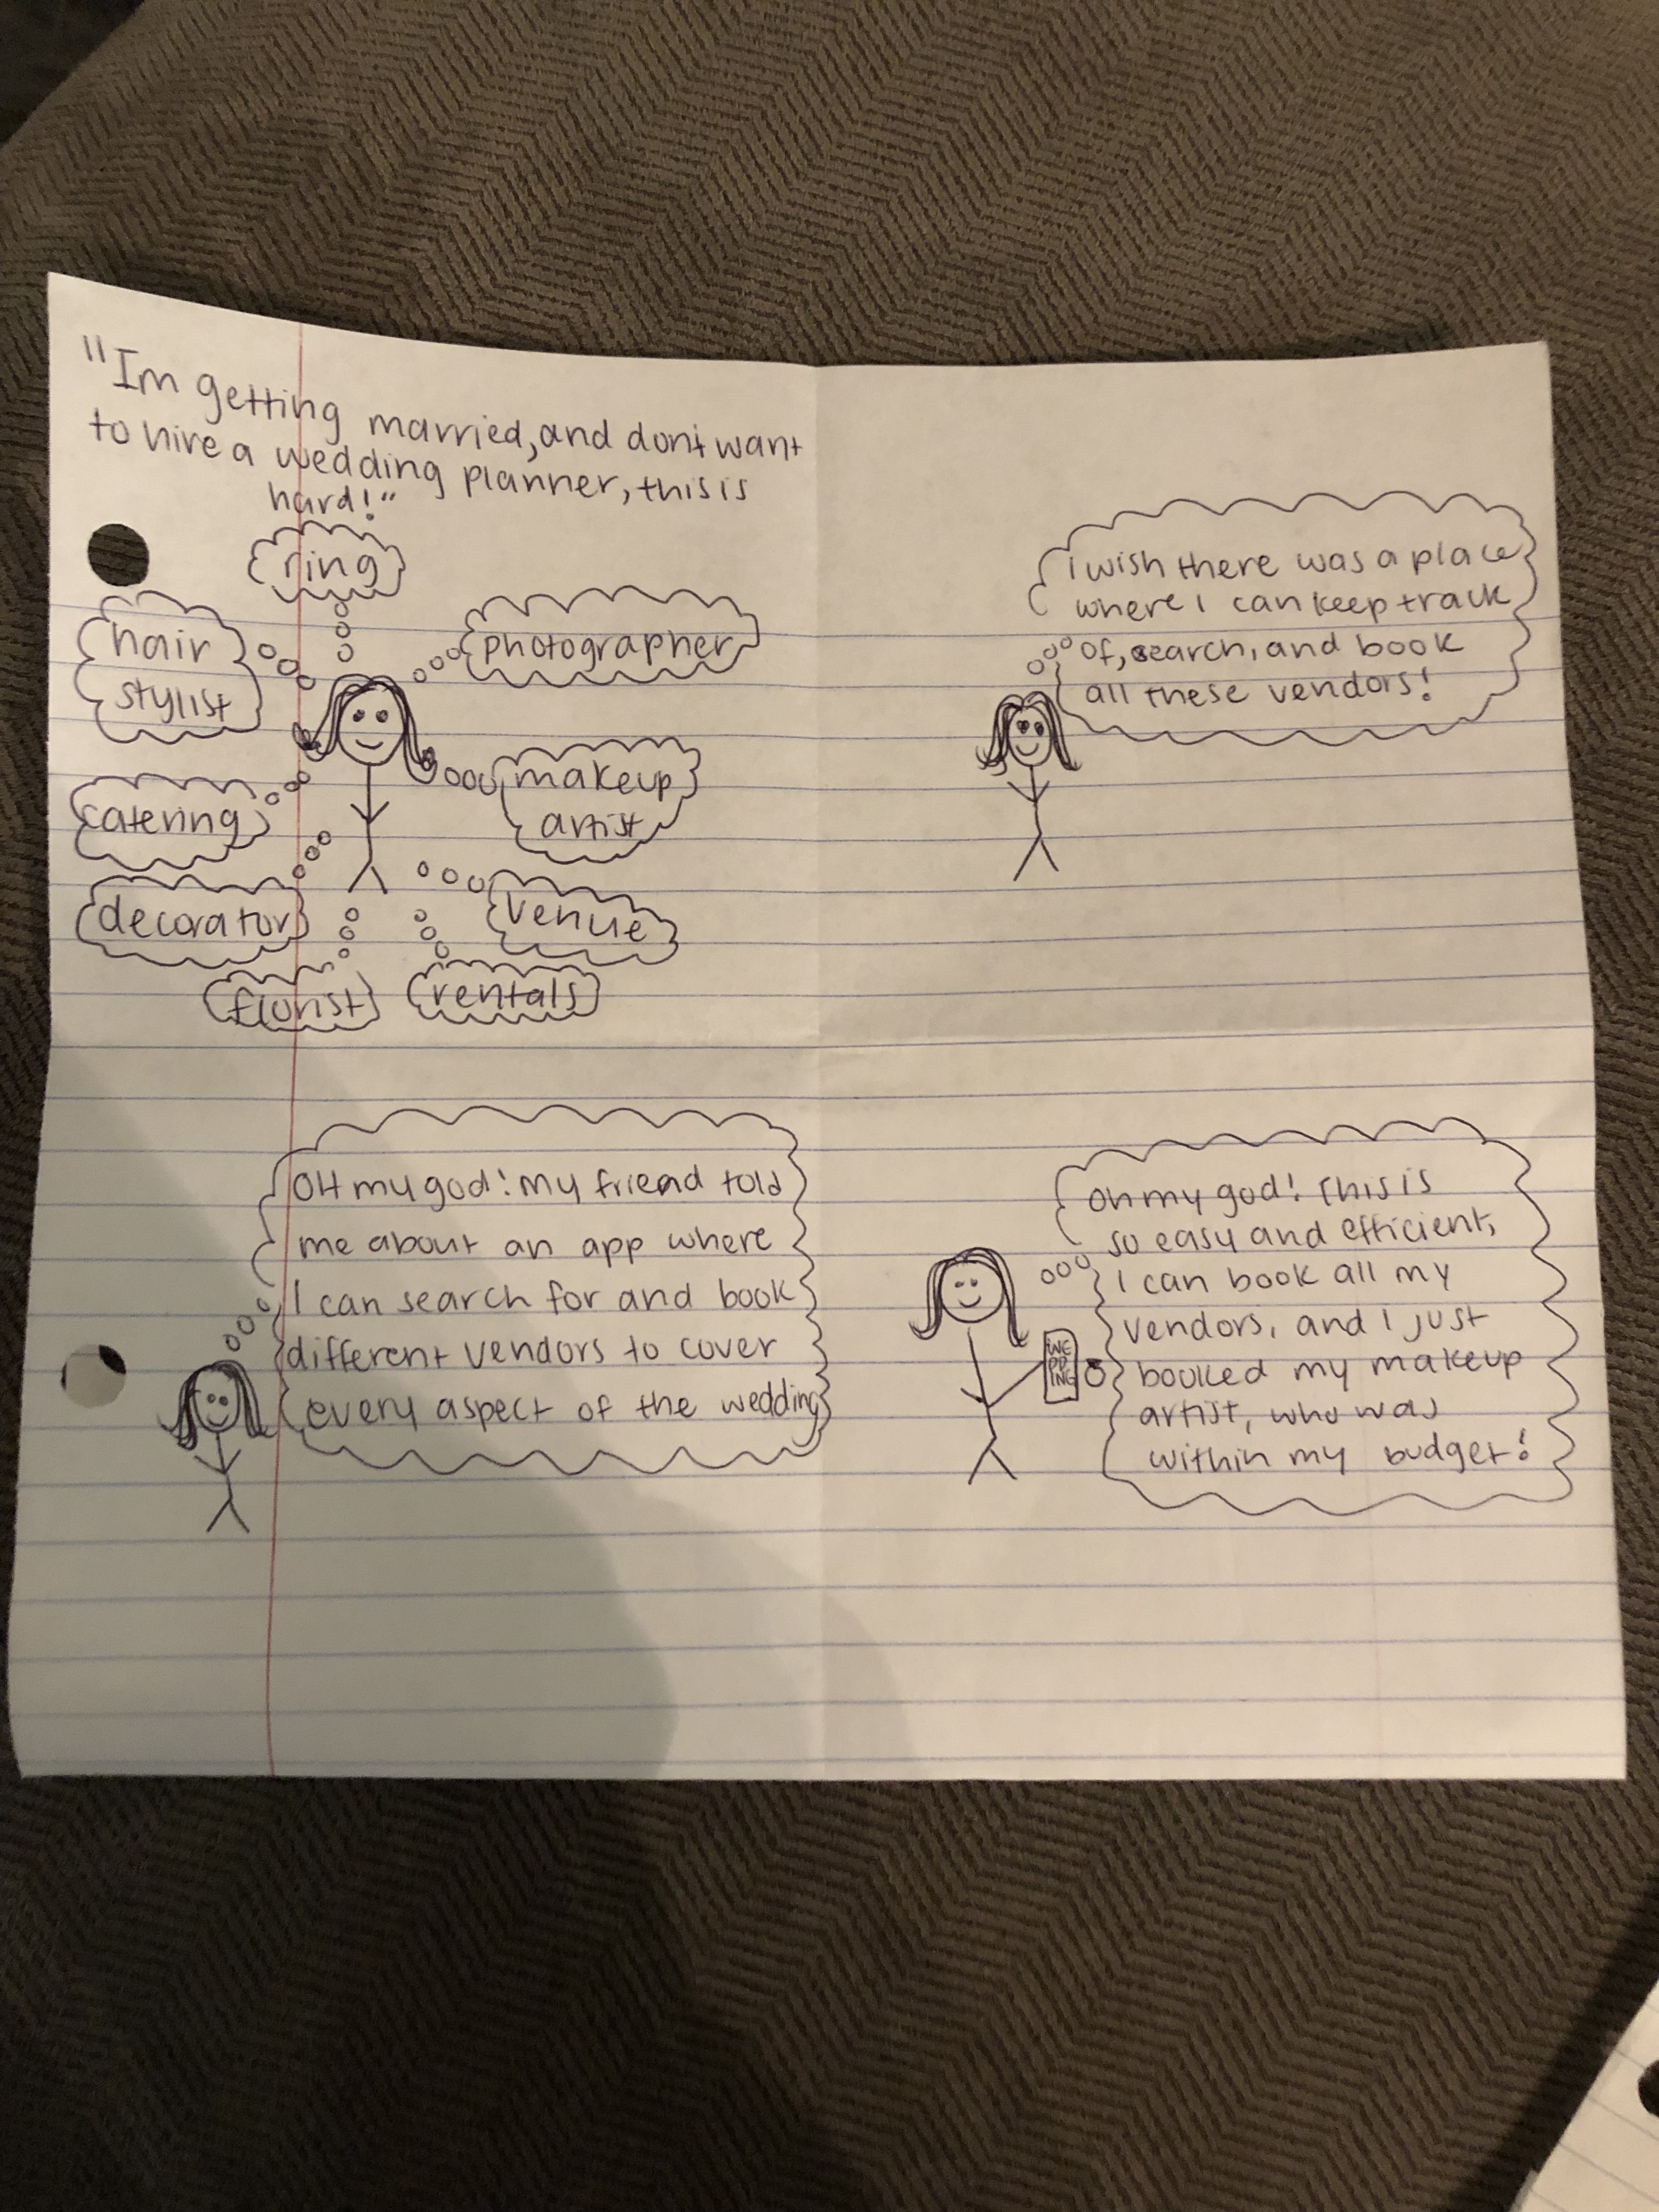 "Im getting married, and dont want
to hire a wedding planner, this is
hard!"
ring
hair
stylist
photographer
catering
makeup
artist
decorator
venue
florist
rentals
I wish there was a place
where I can keep track
of, search, and book
all these vendors!
OH my god! My friend told
me about an app where
I can search for and book
different vendors to cover
every aspect of the wedding
Oh my god! This is
so easy and efficient,
I can book all my
vendors, and I just
booked my makeup
artist, who was
within my budget!
WE
DD
ING